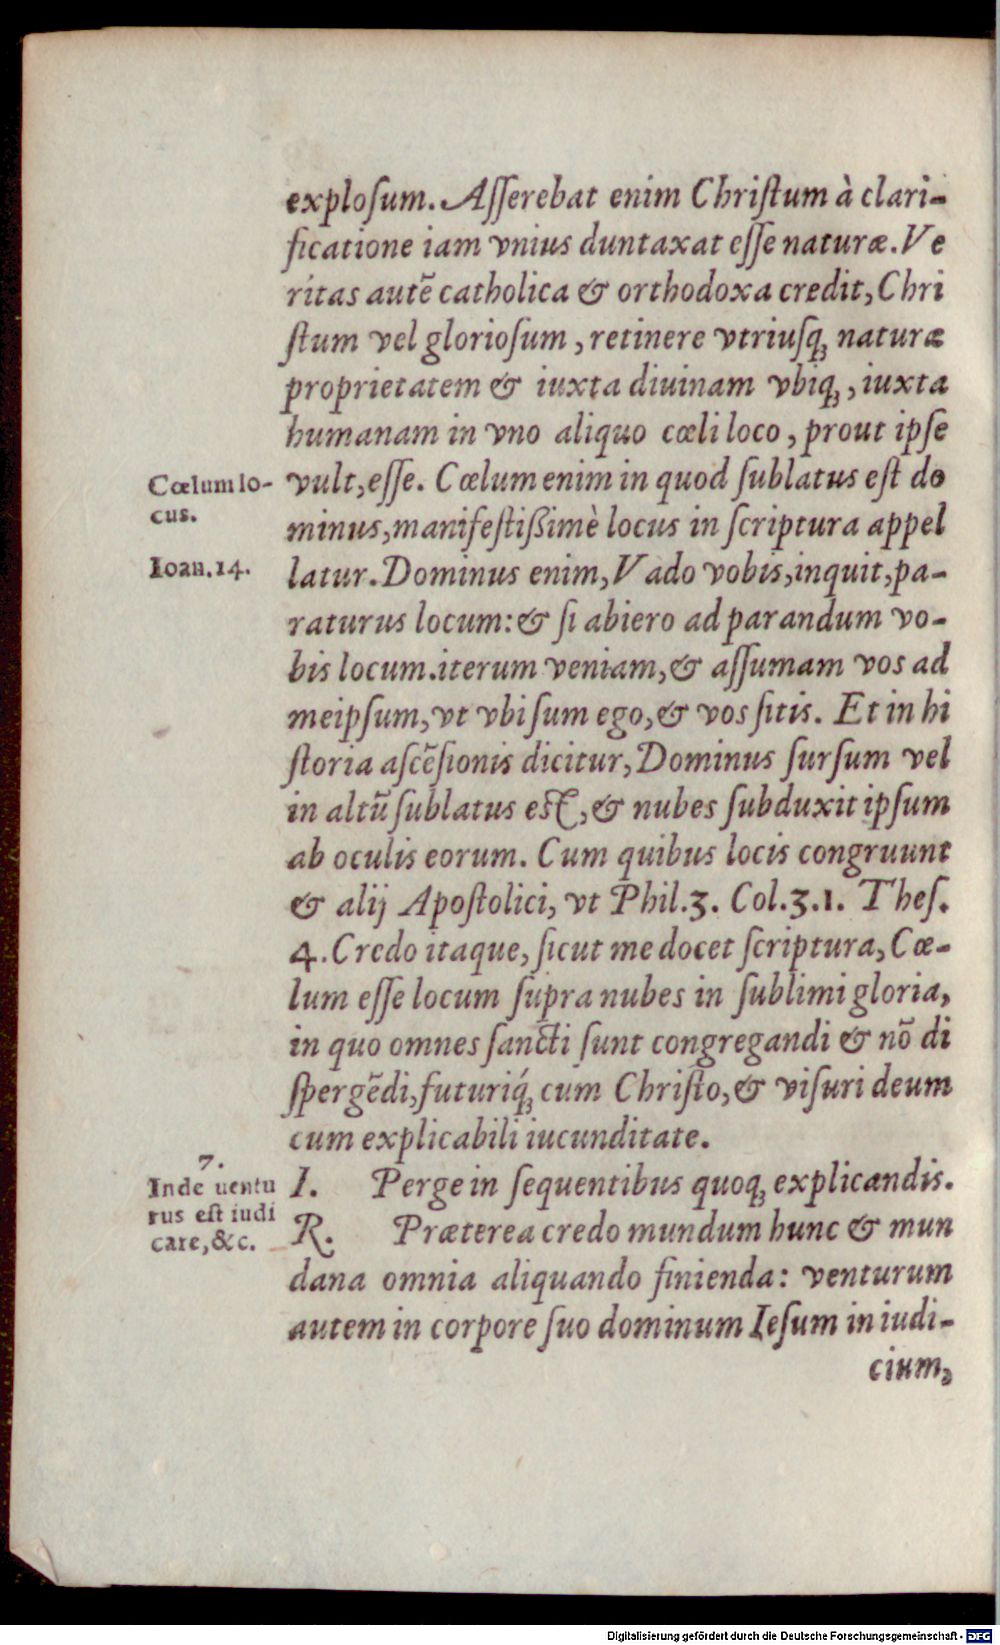 explosum. Asserebat enim Christum à clari-
ficatione iam vnius duntaxat esse naturæ. Ve
ritas autẽ catholica & orthodoxa credit, Chri
stum vel gloriosum, retinere vtriusq; naturæ
proprietatem & iuxta diuinam vbiq;, iuxta
humanam in vno aliquo cœli loco, prout ipse
Cœlum lo-
cus.
vult, esse. Cœlum enim in quod sublatus est do
minus, manifestißimè locus in scriptura appel
Ioan. 14.
latur. Dominus enim, Vado vobis, inquit, pa-
raturus locum: & si abiero ad parandum vo-
bis locum. iterum veniam, & assumam vos ad
meipsum, vt vbi sum ego, & vos sitis. Et in hi
storia ascẽsionis dicitur, Dominus sursum vel
in altũ sublatus est, & nubes subduxit ipsum
ab oculis eorum. Cum quibus locis congruunt
& alij Apostolici, vt Phil. 3. Col. 3. 1. Thes.
4. Credo itaque, sicut me docet scriptura, Cœ-
lum esse locum supra nubes in sublimi gloria,
in quo omnes sancti sunt congregandi & nõ di
spergẽdi, futuriq́; cum Christo, & visuri deum
cum explicabili iucunditate.
7.
Inde uentu
rus est iudi
care, &c.
I. Perge in sequentibus quoq; explicandis.
R. Præterea credo mundum hunc & mun
dana omnia aliquando finienda: venturum
autem in corpore suo dominum Iesum in iudi-
cium,
Digitalisierung gefördert durch die Deutsche Forschungsgemeinschaft - DFG